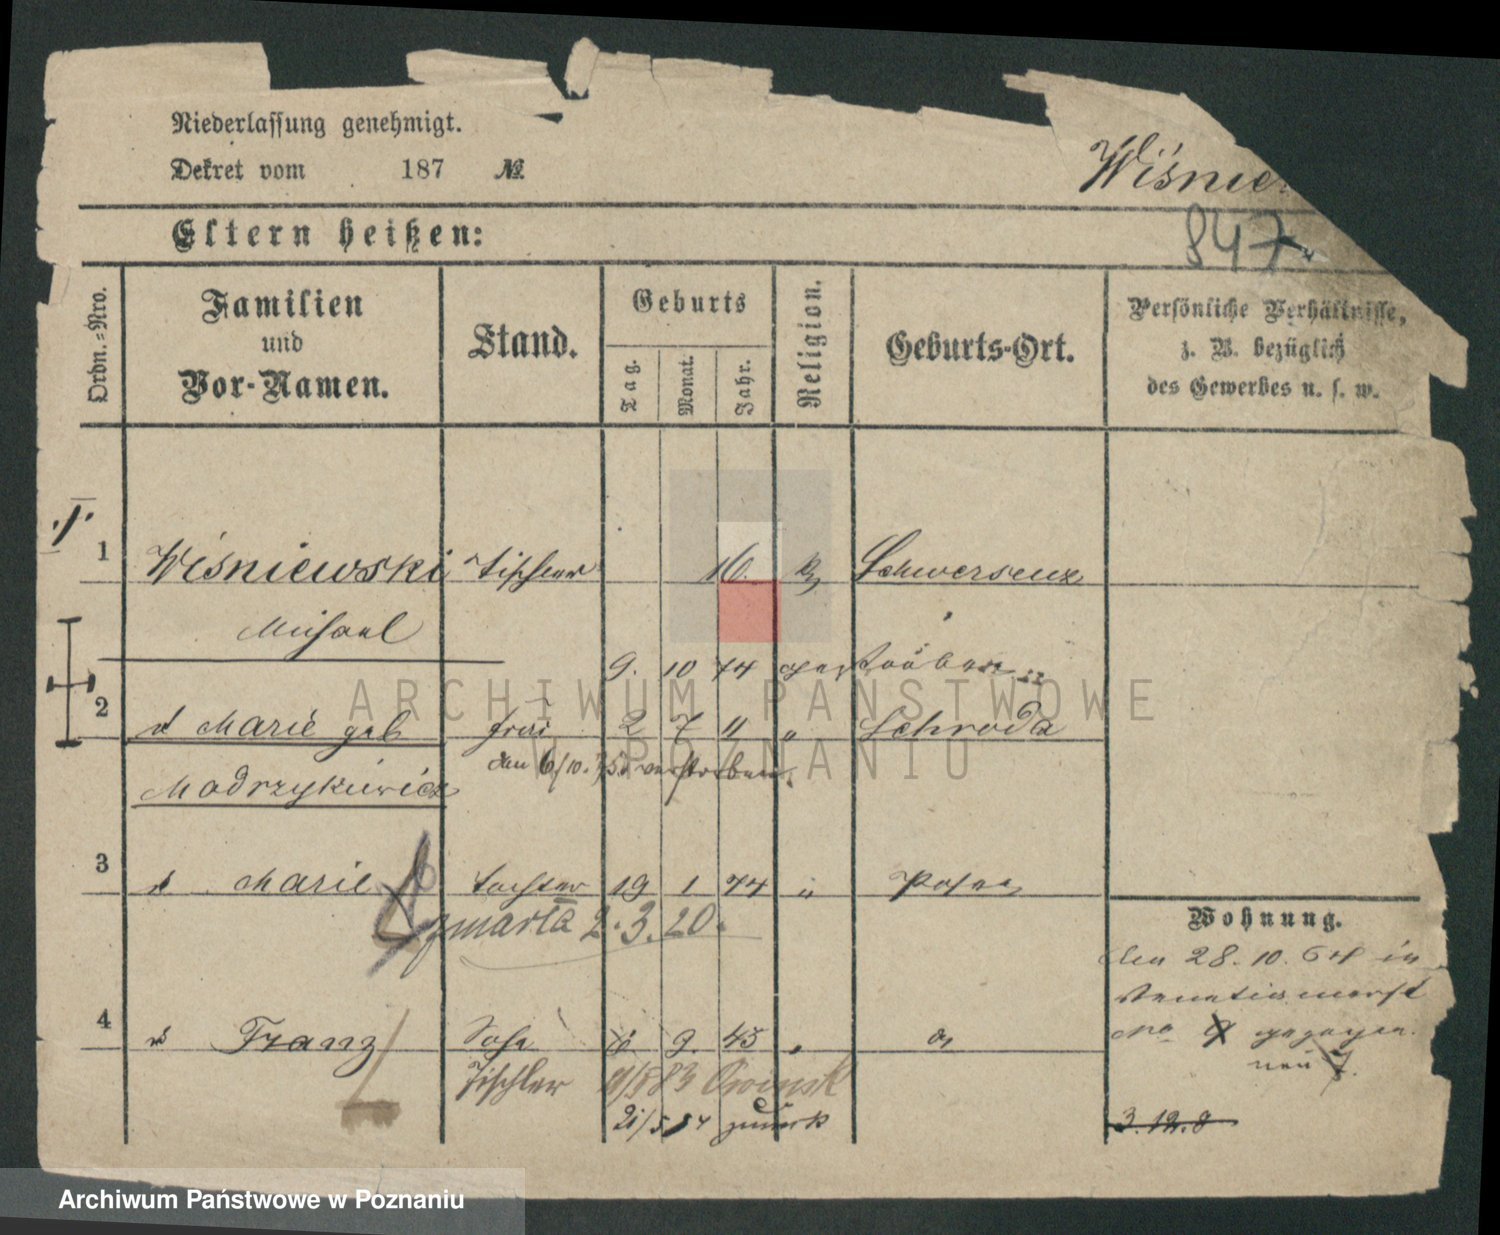 Niederlassung genehmigt.
Dekret vom 187 №
Wiśniew
847
Eltern heißen:
Ordn.-Nro.
Familien
und
Vor-Namen.
Stand.
Geburts
Tag.
Monat.
Jahr.
Religion.
Geburts-Ort.
Persönliche Verhältnisse,
z. B. bezüglich
des Gewerbes u. s. w.
1 Wiśniewski Tischler 16. Schwersenz
Michael
9. 10 74 gestorben
2 Marie geb Frau 2 7 " " Schroda
den 6/10. verstorben
Madrzykiewicz
3 Marie Tochter 19 1 74 " Posen
zmarła 2.3.20.
Wohnung.
den 28. 10. 64 in
No 9 gezogen.
neu 7.
3. 12. 8
4 Franz Sohn 8 9. 45 "
Tischler
21/5 84 zurück
ARCHIWUM PAŃSTWOWE
W POZNANIU
Archiwum Państwowe w Poznaniu